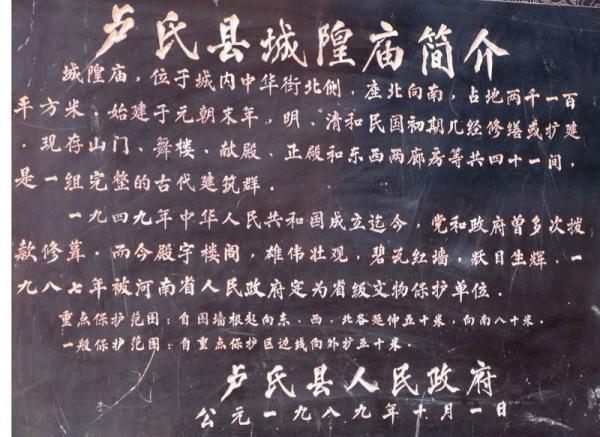 卢氏县城隍庙简介
城隍庙，位于城内中华街北侧，座北向南，占地两千一百
平方米，始建于元朝末年，明、清和民国初期几经修缮或扩建
，现存山门、舞楼、献殿、正殿和东西两廊房等共四十一间，
是一组完整的古代建筑群．
一九四九年中华人民共和国成立迄今，党和政府曾多次拨
款修葺．而今殿宇楼阁，雄伟壮观，碧瓦红墙，狀目生辉．一
九八七年被河南省人民政府定为省级文物保护单位．
重点保护范围：自围墙根起向东、西、北各延伸五十米，向南八十米．
一般保护范围：自重点保护区边线向外扩五十米．
卢氏县人民政府
公元一九八九年十月一日